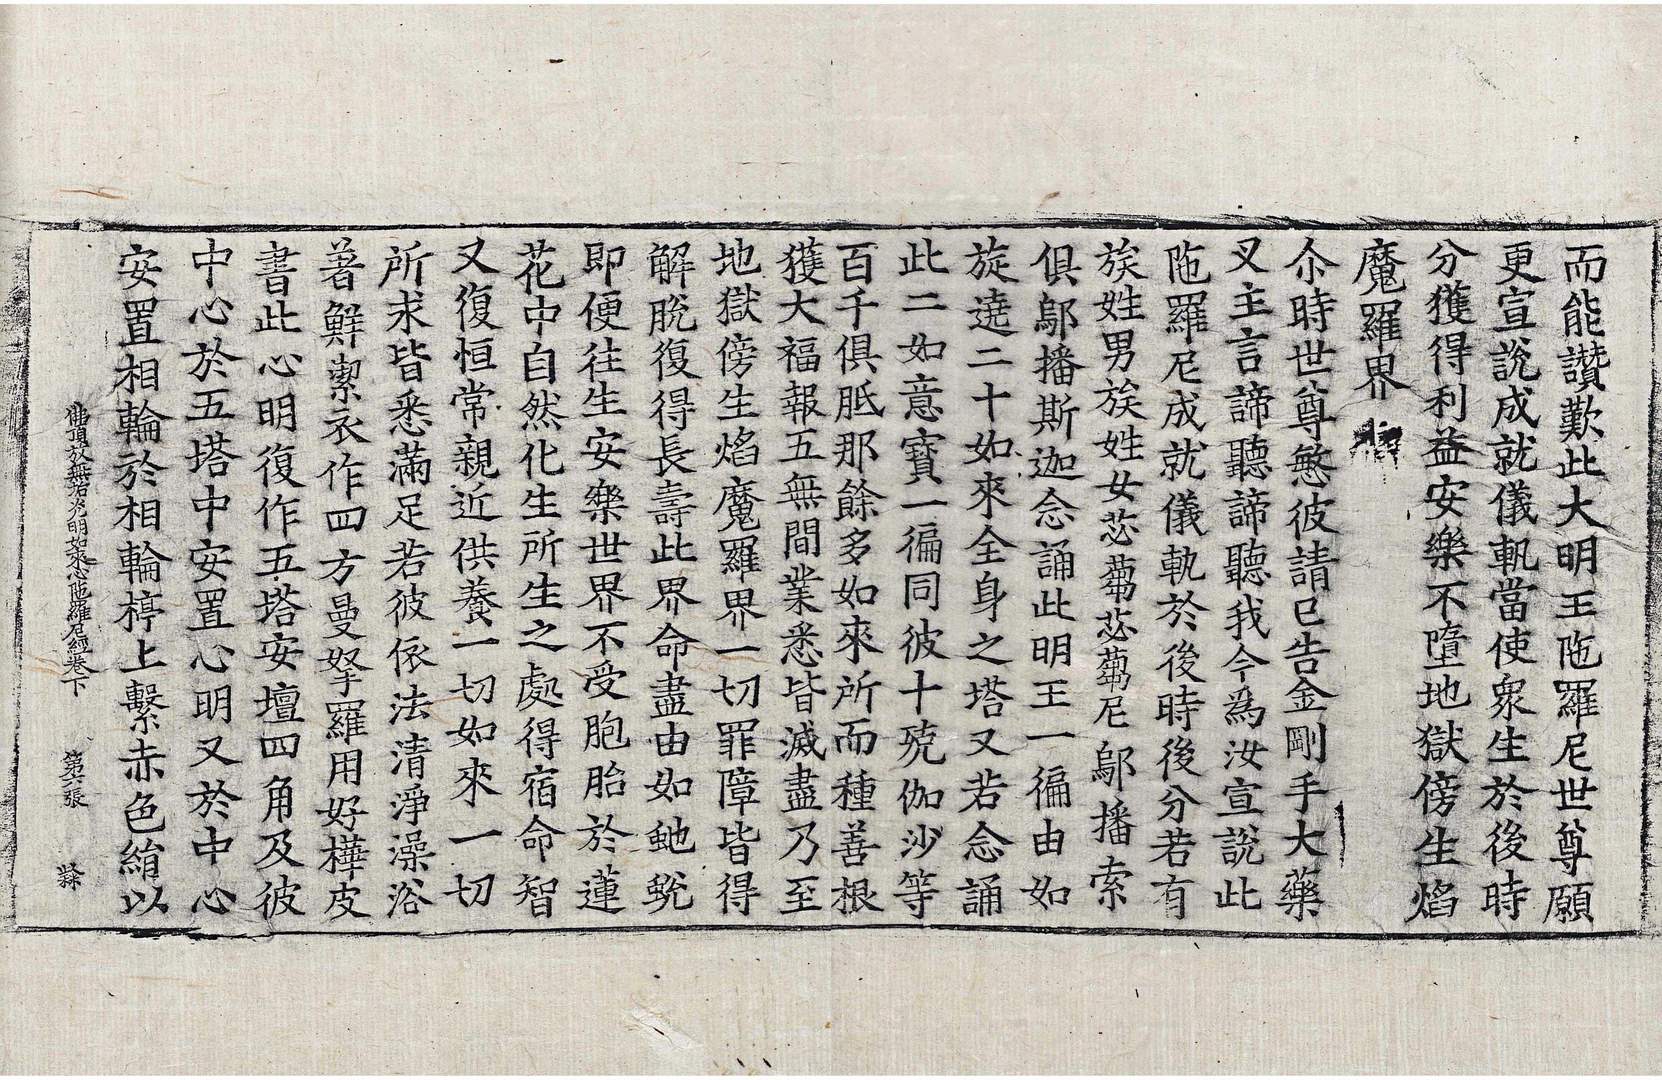 而能讃歎此大明王陁羅尼世尊願
更宣說成就儀軌當使衆生於後時
分獲得利益安樂不墮地獄傍生焰
魔羅界
尒時世尊愍彼請已告金剛手大藥
叉主言諦聽諦聽我今爲汝宣說此
陁羅尼成就儀軌於後時後分若有
族姓男族姓女苾蒭苾蒭尼鄔播索
俱鄔播斯迦念誦此明王一徧由如
旋遶二十如來全身之塔又若念誦
此二如意寶一徧同彼十殑伽沙等
百千俱胝那餘多如來所而種善根
獲大福報五無間業悉皆滅盡乃至
地獄傍生焰魔羅界一切罪障皆得
解脫復得長壽此界命盡由如虵蛻
即便往生安樂世界不受胞胎於蓮
花中自然化生所生之處得宿命智
又復恒常親近供養一切如來一切
所求皆悉滿足若彼依法清淨澡浴
著鮮潔衣作四方曼拏羅用好樺皮
書此心明復作五塔安壇四角及彼
中心於五塔中安置心明又於中心
安置相輪於相輪㨔上繫赤色絹以
佛頂放無垢光明如來心陁羅尼經卷下 第六張